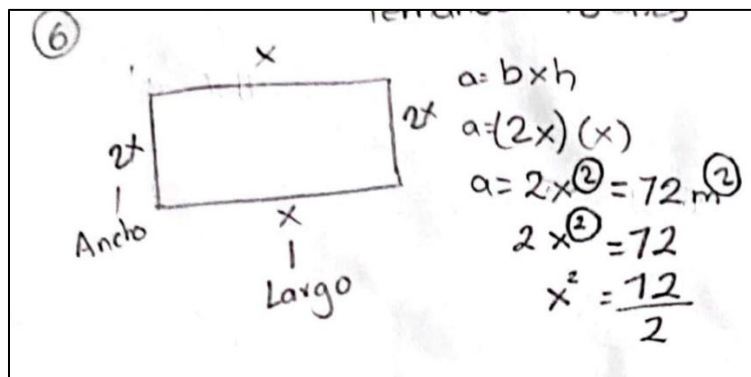 6
x
2x
2x
Ancho
x
Largo
a= b x h
a=(2x) (x)
a= 2x² = 72 m²
2x² = 72
x² = 72
2